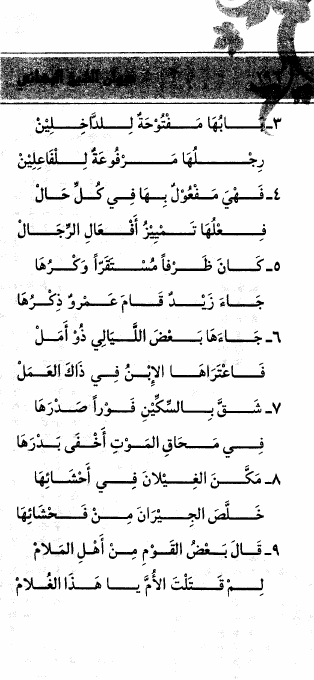 ٣ـ بَـابُهَا مَـفْتُوحَةٌ لِـلدَّاخِـلِيْنْ
رِجْـلُـهَا مَـرْفُوعَةٌ لِـلْفَاعِلِيْنْ
٤ـ فَـهْيَ مَـفْعُوْلٌ بِـهَا فِي كُـلِّ حَـالْ
فِـعْلُهَا تَـمْيِيْزُ أَفْـعَالِ الرِّجَـالْ
٥ـ كَـانَ ظَـرْفاً مُسْـتَقَرّاً وَكْـرُهَا
جَـاءَ زَيْـدٌ قَـامَ عَـمْروٌ ذِكْـرُهَا
٦ـ جَـاءَهَا بَـعْضَ اللَّـيَالِي ذُوْ أَمَـلْ
فَـاعْتَرَاهَـا الإِبْـنُ فِـي ذَاكَ العَمَلْ
٧ـ شَـقَّ بِـالسِّكِّيْنِ فَـوْراً صَدْرَهَا
فِي مَـحَاقِ المَـوْتِ أَخْـفَى بَـدْرَهَا
٨ـ مَكَّـنَ الغِيْلانَ فِـي أَحْشَـائِهَا
خَـلَّصَ الجِـيْرَانَ مِـنْ فَـحْشَائِهَا
٩ـ قَـالَ بَـعْضُ القَـوْمِ مِـنْ أَهْلِ المَـلامْ
لِـمْ قَـتَلْتَ الأُمَّ يـا هَـذَا الغُـلامْ